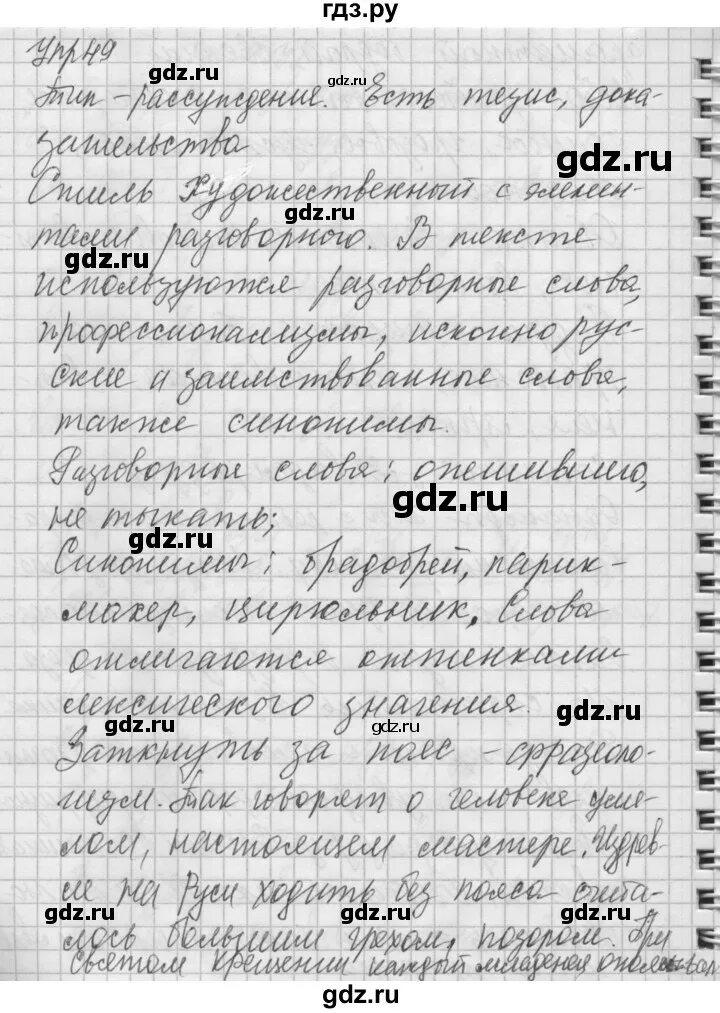 гдз.ру
Упр 49
gdz.ru
gdz.ru
Тип - рассуждение. Есть тезис, дока-
зательства
gdz.ru
Стиль художественный с элемен-
gdz.ru
тами разговорного. В тексте
gdz.ru
используются разговорные слова,
gdz.ru
профессионализмы, исконно рус-
ские и заимствованные слова,
gdz.ru
также синонимы.
Разговорные слова: опешившего,
gdz.ru
не тыкать;
gdz.ru
Синонимы: брадобрей, парик-
махер, цирюльник. Слова
gdz.ru
отличаются оттенками
лексического значения.
gdz.ru
gdz.ru
gdz.ru
Заткнуть за пояс - фразеоло-
гизм. Так говорят о человеке уме-
лом, настоящем мастере. Издрев-
gdz.ru
ле на Руси ходить без пояса счита-
gdz.ru
gdz.ru
лось большим грехом, позором. При
святом крещении каждый младенец
gdz.ru
gdz.ru